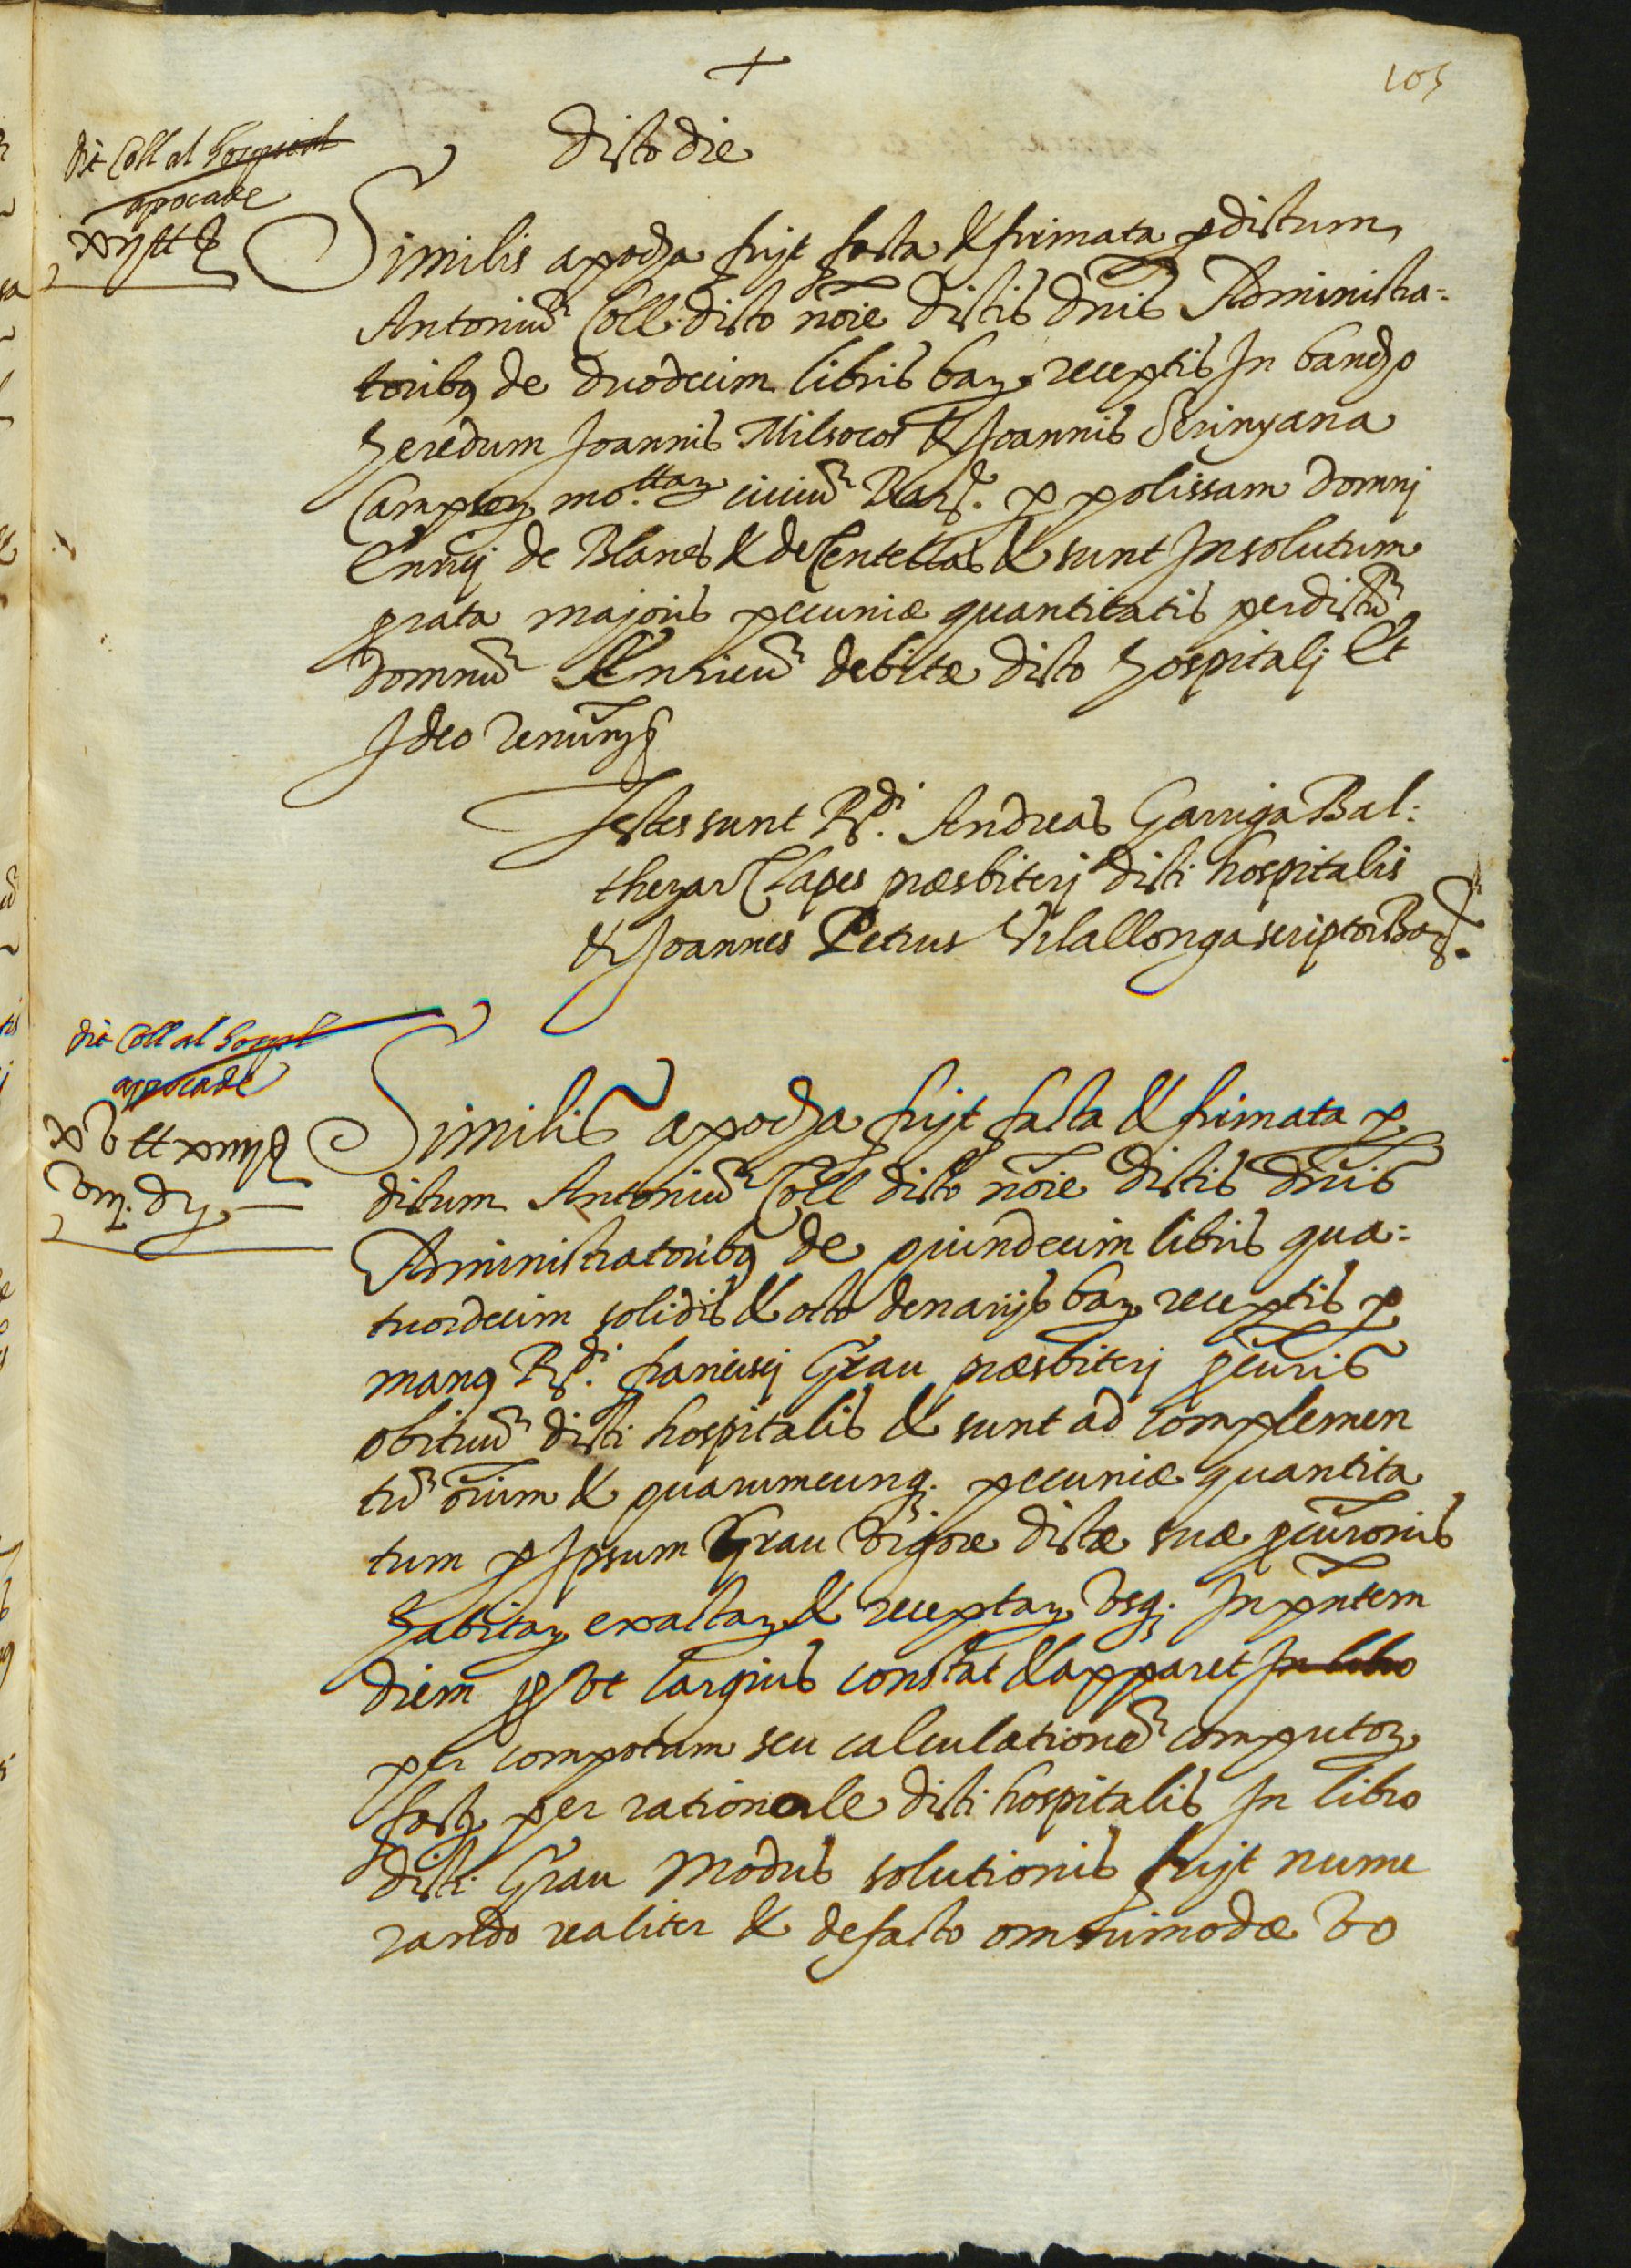 +
105
Dicto die
dit Coll al hospital
apocade
xij ll s
Similis apocha fuit facta & firmata p dictum
Antoniũ Coll dicto noĩe dictis dñis Administra=
toribq de duodecim libris barz receptis In bancho
heredum Joannis Milsocos & Joannis Serinyana
Campsorz mo.llarz civiũ Barz. p polissam Domnj
Enricj de Blanes & de Centellas & sunt Insolutum
prata majoris pecuniæ quantitatis per dictũ
Domnũ Enricũ debitæ dicto hospitalj Et
Ideo renuñ
Testes sunt R.di Andreas Garriga Bal:
thezar Clapes præsbiterj dicti hospitalis
& Joannes Petrus Vilallonga scriptor Bar.
dit Coll al hospl
apocade
xv ll xiiij s
viij. drs
Similis apocha fuit facta & firmata p
dictum Antoniũ Coll dicto noĩe dictis dñis
Administratoribq de quindecim libris qua=
tuordecim solidis & octo denarijs barz receptis p
manq R.di francisci Grau præsbiterj pcuris
obituũ dicti hospitalis & sunt ad complemen
tũ oĩum & quarumcunq. pecuniæ quantita
tum p Ipsum Grau vigore dictæ suæ pcuronis
habitarz exactarz & receptarz vsq. In pñtem
diem put largius constat & apparet In libro
per compotum seu calculationẽ computorz
factz per rationale dicti hospitalis In libro
dicti Grau Modus solutionis fuit nume
rando realiter & defacto omnimodæ vo